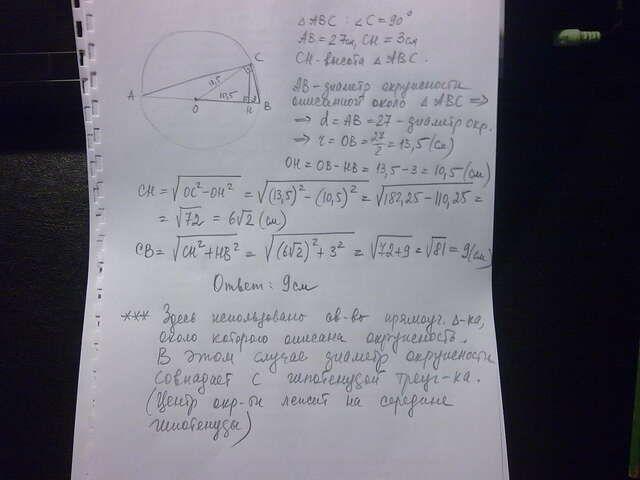 △ABC : ∠C = 90°
AB = 27см, CH = 3см
CH - высота △ABC.
C
13,5
A
10,5
O
H
B
AB - диаметр окружности
описанной около △ABC ⇒
⇒ d = AB = 27 - диаметр окр.
⇒ r = OB = 27/2 = 13,5 (см)
OH = OB - HB = 13,5 - 3 = 10,5 (см)
CH = √(OC² - OH²) = √((13,5)² - (10,5)²) = √(182,25 - 110,25) =
= √72 = 6√2 (см)
CB = √(CH² + HB²) = √((6√2)² + 3²) = √(72+9) = √81 = 9(см)
Ответ: 9см
*** Здесь использовано св-во прямоуг. △-ка,
около которого описана окружность.
В этом случае диаметр окружности
совпадает с гипотенузой треуг-ка.
(Центр окр-ти лежит на середине
гипотенузы)